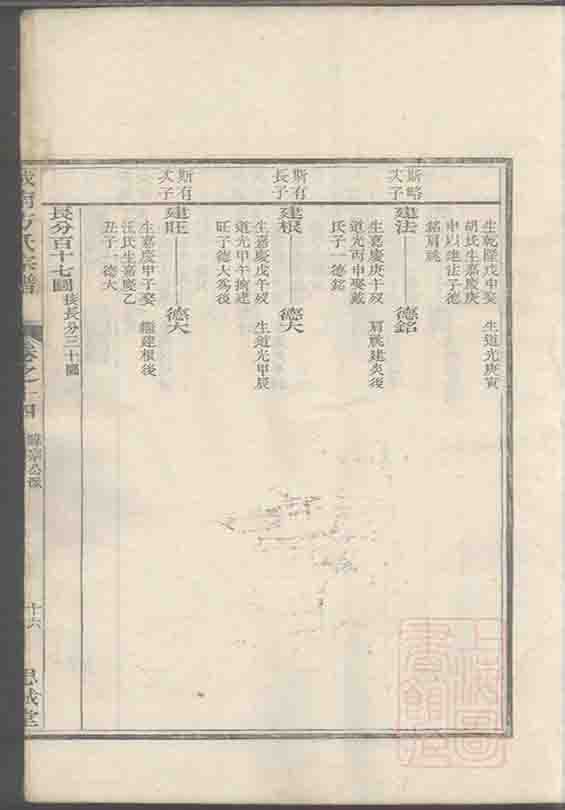 生乾隆戊申娶
胡氏生嘉慶庚
申以繼法子德
銘肩祧
生道光庚寅
斯略
次子
建法
德銘
生嘉慶庚午歿
道光丙申娶戴
氏子一德銘
肩祧建炎後
斯有
長子
建根
德大
生嘉慶戊午歿
道光甲午撫建
旺子德大為後
生道光甲辰
斯有
次子
建旺
德大
生嘉慶甲子娶
汪氏生嘉慶乙
丑子一德大
繼建根後
長分百十七圖
接長分三十圖
方氏宗譜
卷之十四
宗公派
十六
思誠堂
上海圖
書館藏